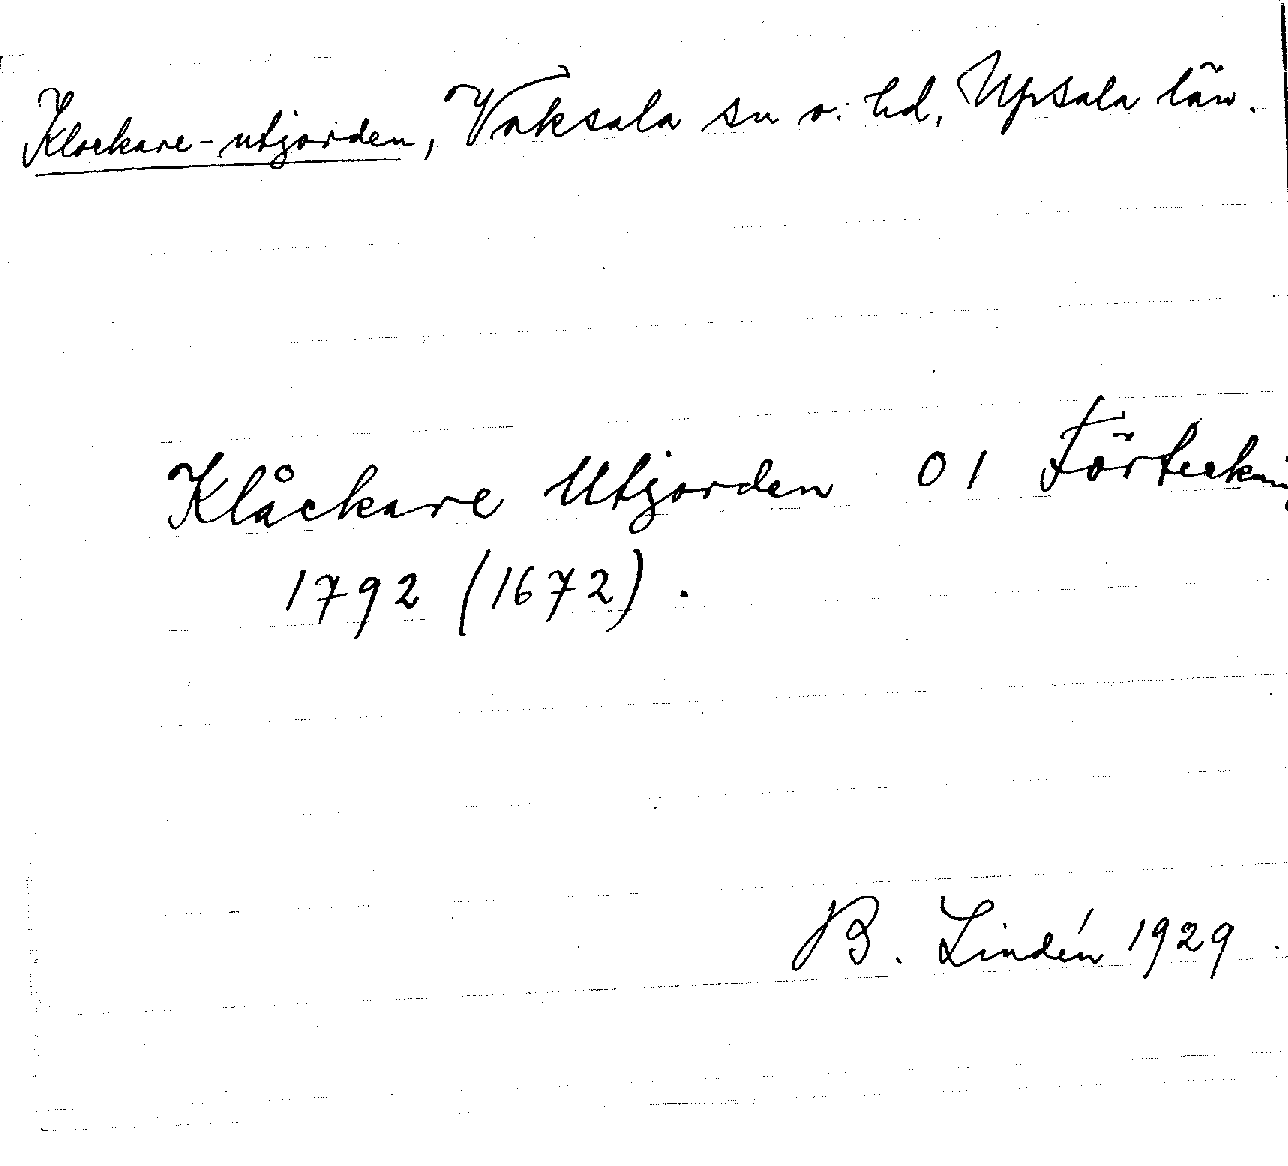 Klockare-utjorden, Vaksala sn o. hd, Upsala län.
Klåckare Utjorden 01 Förteckni
1792 (1672).
B. Lindén 1929.